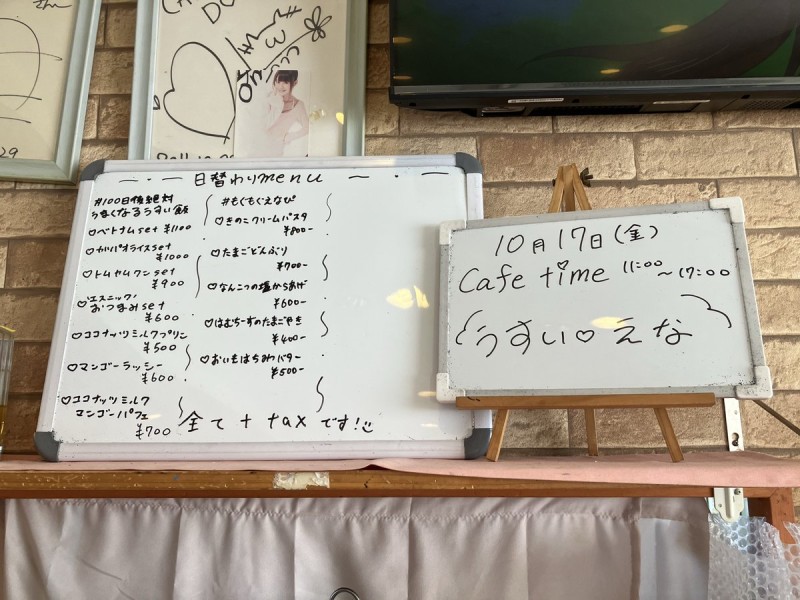 日替わりmenu
#100日後絶対
うまくなるうすい飯
♡ベトナムset ¥1100
♡ガパオライスset
¥1000
♡トムヤムクンset
¥900
♡エスニック
おつまみset
¥600
♡ココナッツミルクプリン
¥500
♡マンゴーラッシー
¥600
♡ココナッツミルク
マンゴーパフェ
¥700
#もぐもぐえなぴ
♡きのこクリームパスタ
¥800-
♡たまごどんぶり
¥700-
♡なんこつの塩からあげ
¥600-
♡はむちーずのたまごやき
¥400-
♡おいもはちみつバター
¥500-
全て+taxです!
10月17日(金)
Cafe time 11:00
~17:00
うすい♡えな
29